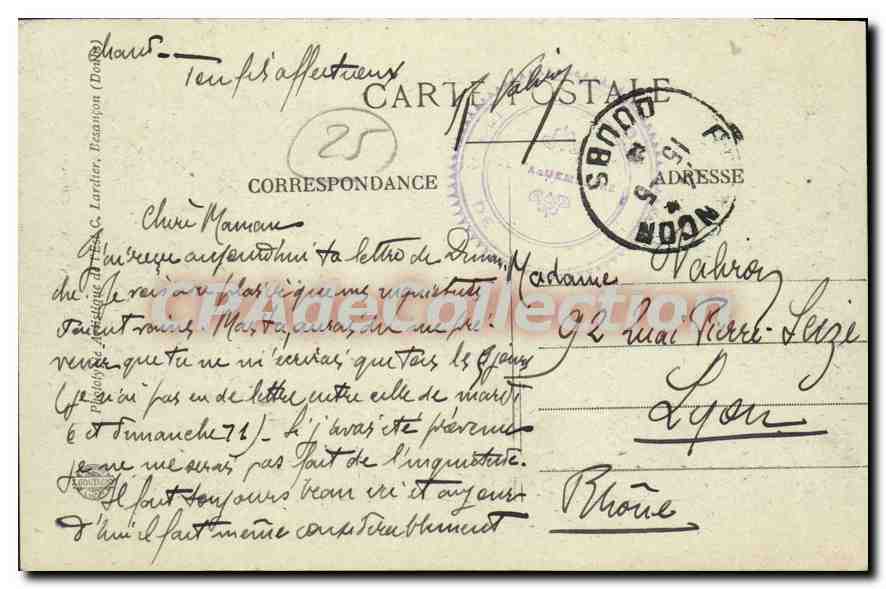 chaud —
Ton fils affectueux
CARTE POSTALE
25
CORRESPONDANCE
ADRESSE
DOUBS
15
5
Chère Maman
J'ai reçu aujourd'hui ta lettre de Diman
che. Je vois avec plaisir que mes inquiétudes
étaient vaines. Mais tu aurais dû me pré-
venir que tu ne m'écrivais que tous les 8 jours
(je n'ai pas eu de lettre entre celle de mardi
6 et dimanche 11). Si j'avais été prévenu
je ne me serais pas fait de l'inquiétude.
Il fait toujours beau ici et aujour
d'hui il fait même considérablement
Madame
92 Quai Pierre-Seize
Lyon
Rhône
Phototypie Artistique de l'Est, C. Lardier, Besançon (Doubs)
CPAdeCollection